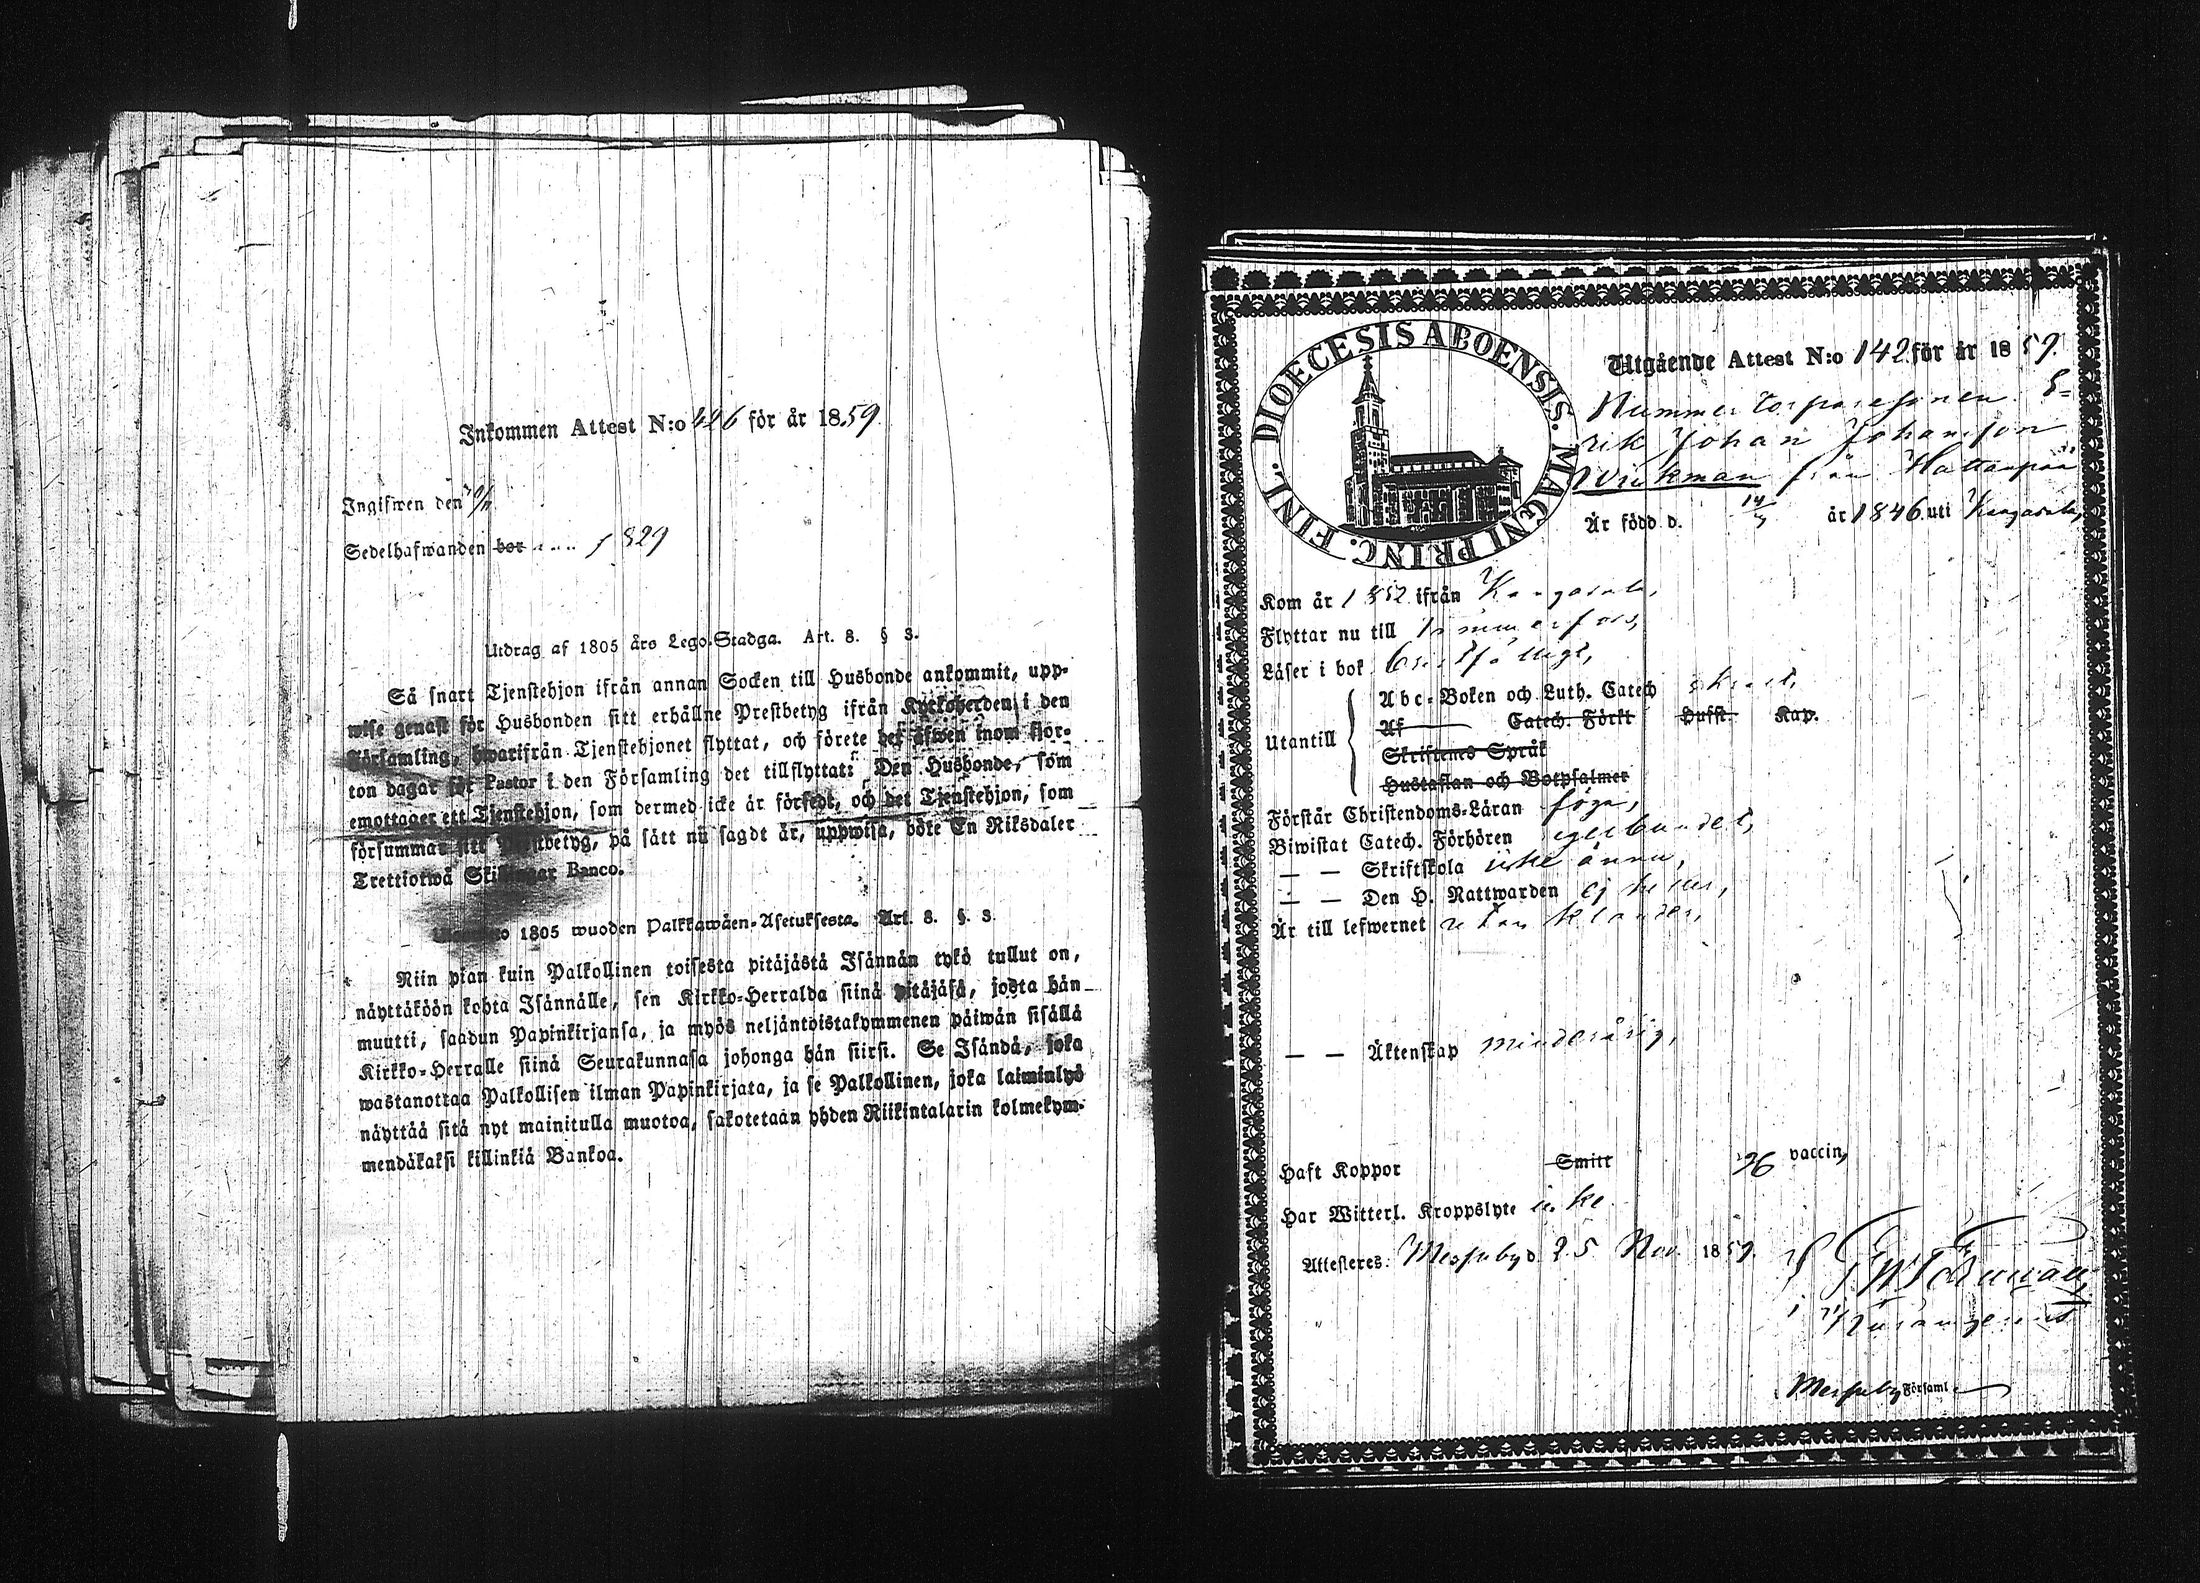 Inkommen Attest N:o 426 för år 1859
Ingifwen den
Sedelhafwanden bor
Utdrag af 1805 års Lego-Stadga. Art. 8. § 3.
Så snart Tjenstehjon ifrån annan Socken till Husbonde ankommit, upp-
wise genast för Husbonden sitt erhållne Prestbetyg ifrån Kyrkoherden i den
Församling, hwarifrån Tjenstehjonet flyttat, och förete det äfwen inom fjor-
ton dagar för Pastor i den Församling det tillflyttat: Den Husbonde, som
emottager ett Tjenstehjon, som dermed icke är försedt, och det Tjenstehjon, som
försummar sitt Prestbetyg, på sätt nu sagdt är, uppwisa, böte En Riksdaler
Trettiotwå Skillingar Banco.
1805 wuoden Palkkawäen-Asetuksesta. Art. 8. §. 3.
Niin pian kuin Palkollinen toisesta pitäjästä Isännän tykö tullut on,
näyttäköön kohta Isännälle, sen Kirkko-Herralda siinä pitäjäsä, josta hän
muutti, saadun Papinkirjansa, ja myös neljäntoistakymmenen päiwän sisällä
Kirkko-Herralle siinä Seurakunnasa johonga hän siirsi. Se Isändä, joka
wastanottaa Palkollisen ilman Papinkirjata, ja se Palkollinen, joka laiminlyö
näyttää sitä nyt mainitulla muotoa, sakotetaan yhden Riikintalarin kolmekym-
mendäkaksi killinkiä Bankoa.
DIOECESIS ABOENSIS. MAGNI PRINC. FINL.
Utgående Attest N:o 142 för år 1859.
Nummer torparesonen E-
rik Johan Johansson
Wirkman från Hattanpää
Är född d. 14/ år 1846 uti Kangasala,
Kom år 1852 ifrån Kangasala,
Flyttar nu till Tammerfors,
Läser i bok
Utantill
Abc-Boken och Luth. Catech
Af Catech. Förkl Husst. Kap.
Skriftenes Språk
Hustaflan och Botpsalmer
Förstår Christendoms-Läran föga,
Biwistat Catech. Förhören
— — Skriftskola icke ännu,
— — Den H. Nattwarden ej heller,
Är till lefwernet utan klander,
— — Äktenskap minderårig,
Haft Koppor Smitt vaccin,
Har Witterl. Kroppslyte icke
Attesteres. Messuby d. 25 Nov. 1859.
Messuby Församl